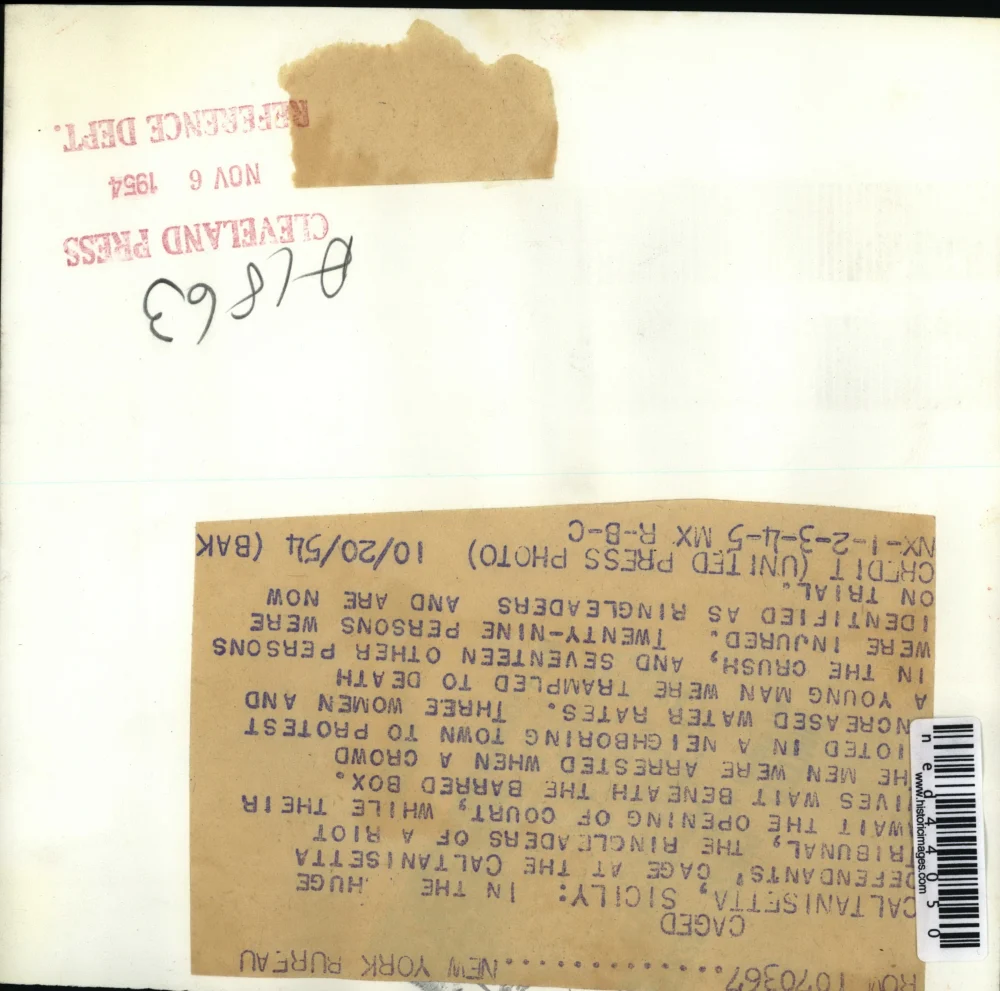 ROM 1070367...............NEW YORK BUREAU
CAGED
CALTANISETTA, SICILY: IN THE HUGE
DEFENDANTS' CAGE AT THE CALTANISETTA
TRIBUNAL, THE RINGLEADERS OF A RIOT
WAIT THE OPENING OF COURT, WHILE THEIR
IVES WAIT BENEATH THE BARRED BOX.
HE MEN WERE ARRESTED WHEN A CROWD
IOTED IN A NEIGHBORING TOWN TO PROTEST
NCREASED WATER RATES. THREE WOMEN AND
A YOUNG MAN WERE TRAMPLED TO DEATH
IN THE CRUSH, AND SEVENTEEN OTHER PERSONS
WERE INJURED. TWENTY-NINE PERSONS WERE
IDENTIFIED AS RINGLEADERS AND ARE NOW
ON TRIAL.
CREDIT (UNITED PRESS PHOTO) 10/20/54 (BAK
NX-1-2-3-4-5 MX R-B-C
CLEVELAND PRESS
NOV 6 1954
REFERENCE DEPT.
1863
www.historicimages.com
ned44050